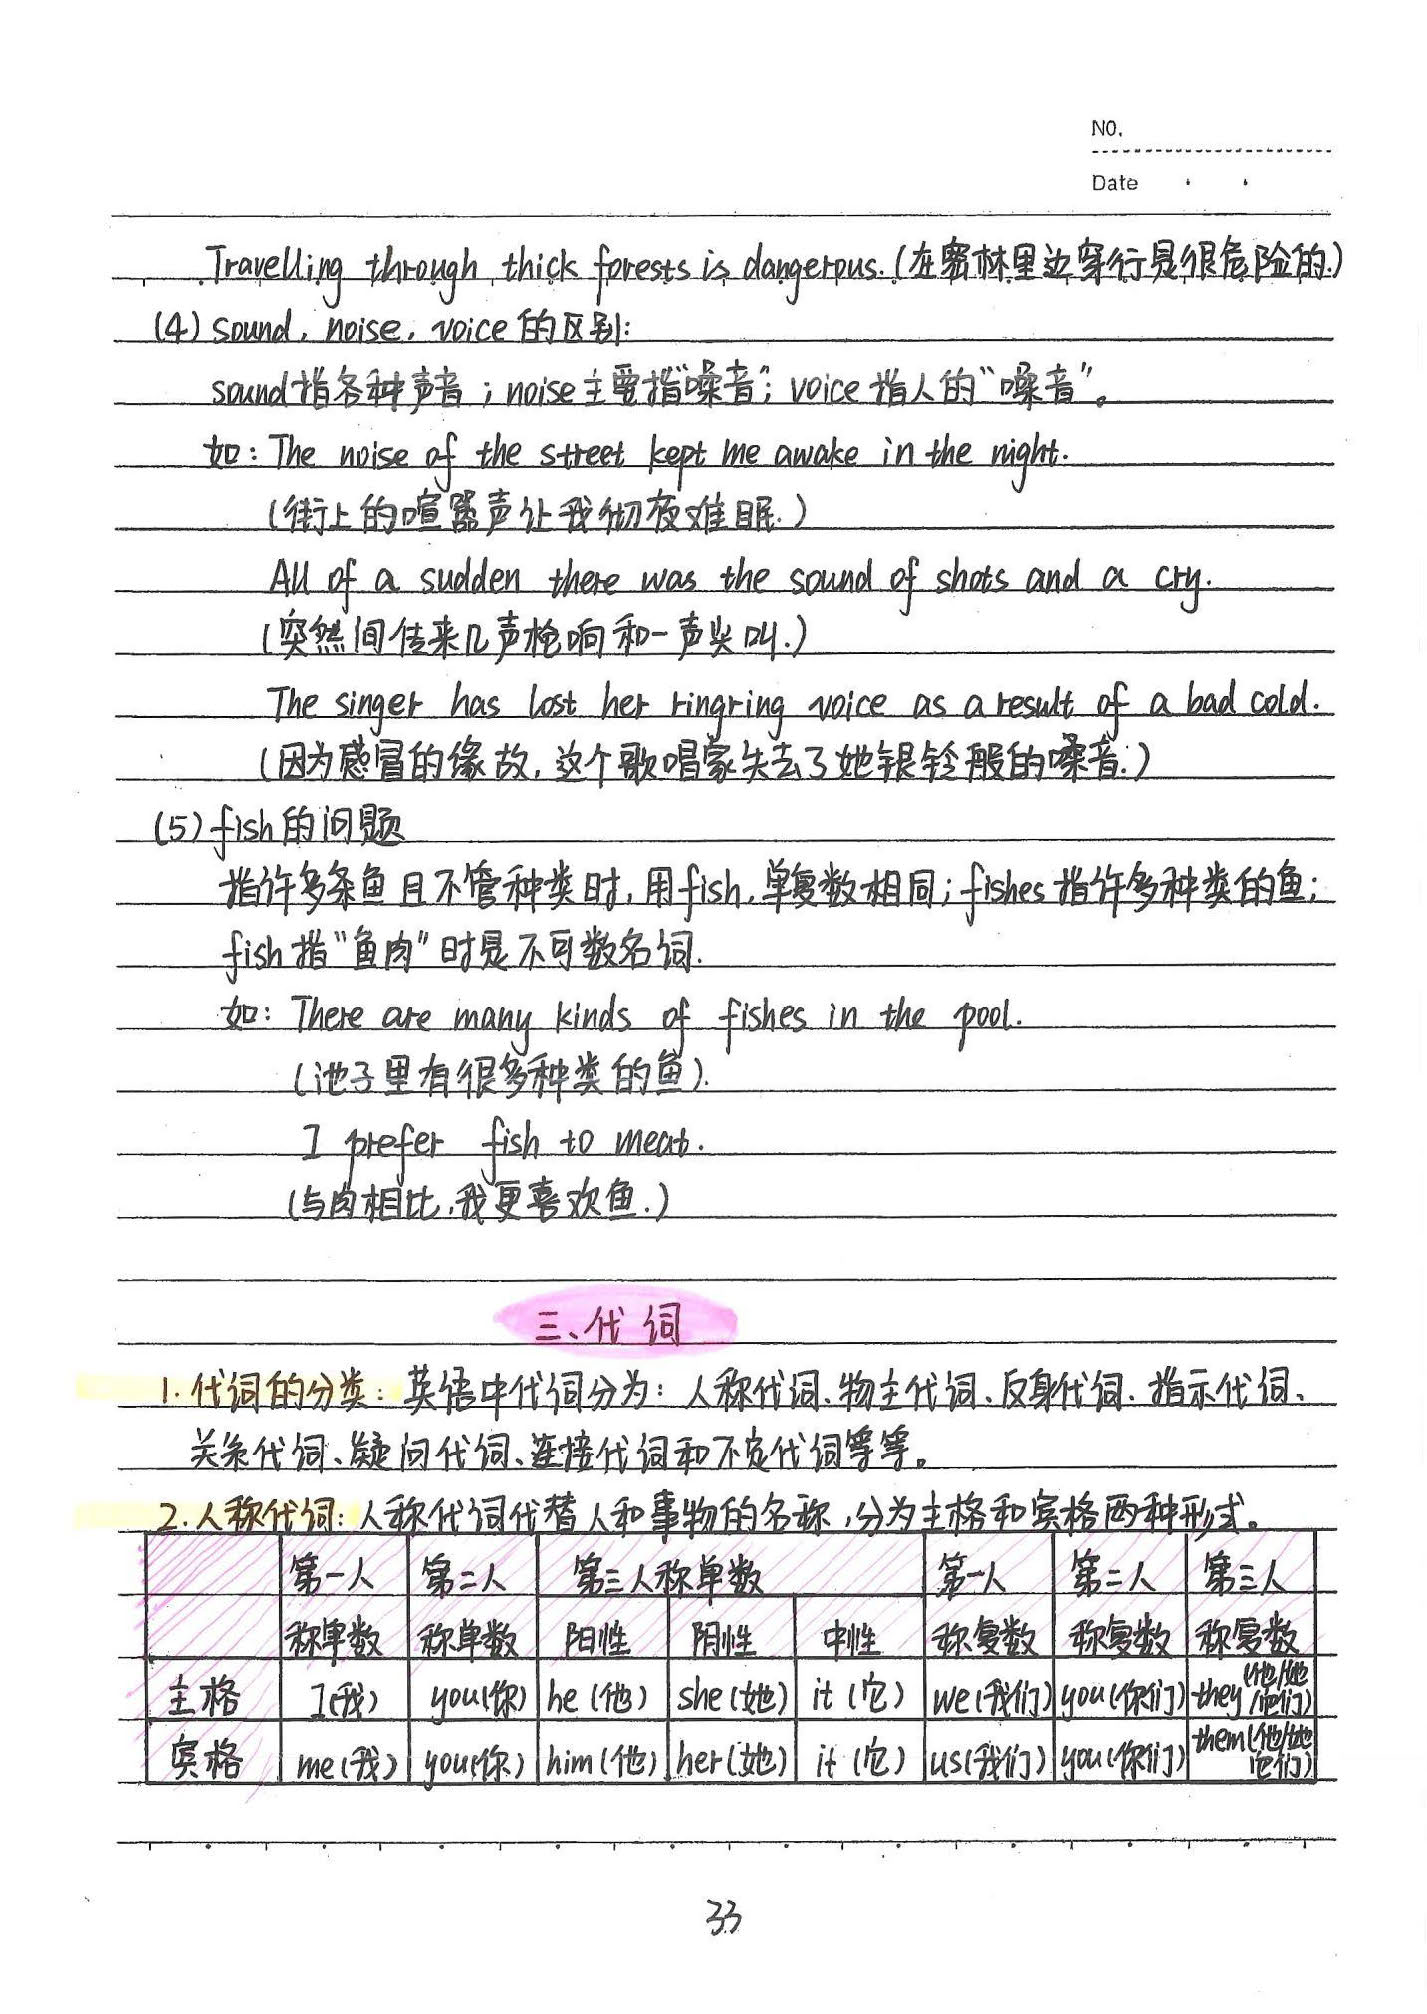 NO.
Date
Travelling through thick forests is dangerous.(在密林里边穿行是很危险的.)
(4) sound, noise, voice 的区别:
sound指各种声音;noise主要指"嗓音";voice指人的"嗓音"。
如: The noise of the street kept me awake in the night.
(街上的喧嚣声让我彻夜难眠.)
All of a sudden there was the sound of shots and a cry.
(突然间传来几声枪响和一声尖叫.)
The singer has lost her ringring voice as a result of a bad cold.
(因为感冒的缘故,这个歌唱家失去了她银铃般的嗓音.)
(5) fish的问题
指许多条鱼且不管种类时,用fish,单复数相同;fishes指许多种类的鱼;
fish指"鱼肉"时是不可数名词.
如: There are many kinds of fishes in the pool.
(池子里有很多种类的鱼).
I prefer fish to meat.
(与肉相比,我更喜欢鱼.)
三、代词
1. 代词的分类: 英语中代词分为: 人称代词、物主代词、反身代词、指示代词、
关系代词、疑问代词、连接代词和不定代词等等。
2. 人称代词: 人称代词代替人和事物的名称,分为主格和宾格两种形式。
第一人 第二人 第三人称单数 第一人 第二人 第三人
称单数 称单数 阳性 阴性 中性 称复数 称复数 称复数
主格 I(我) you(你) he(他) she(她) it(它) we(我们) you(你们) they(他/她/它们)
宾格 me(我) you(你) him(他) her(她) it(它) us(我们) you(你们) them(他/她/它们)
33